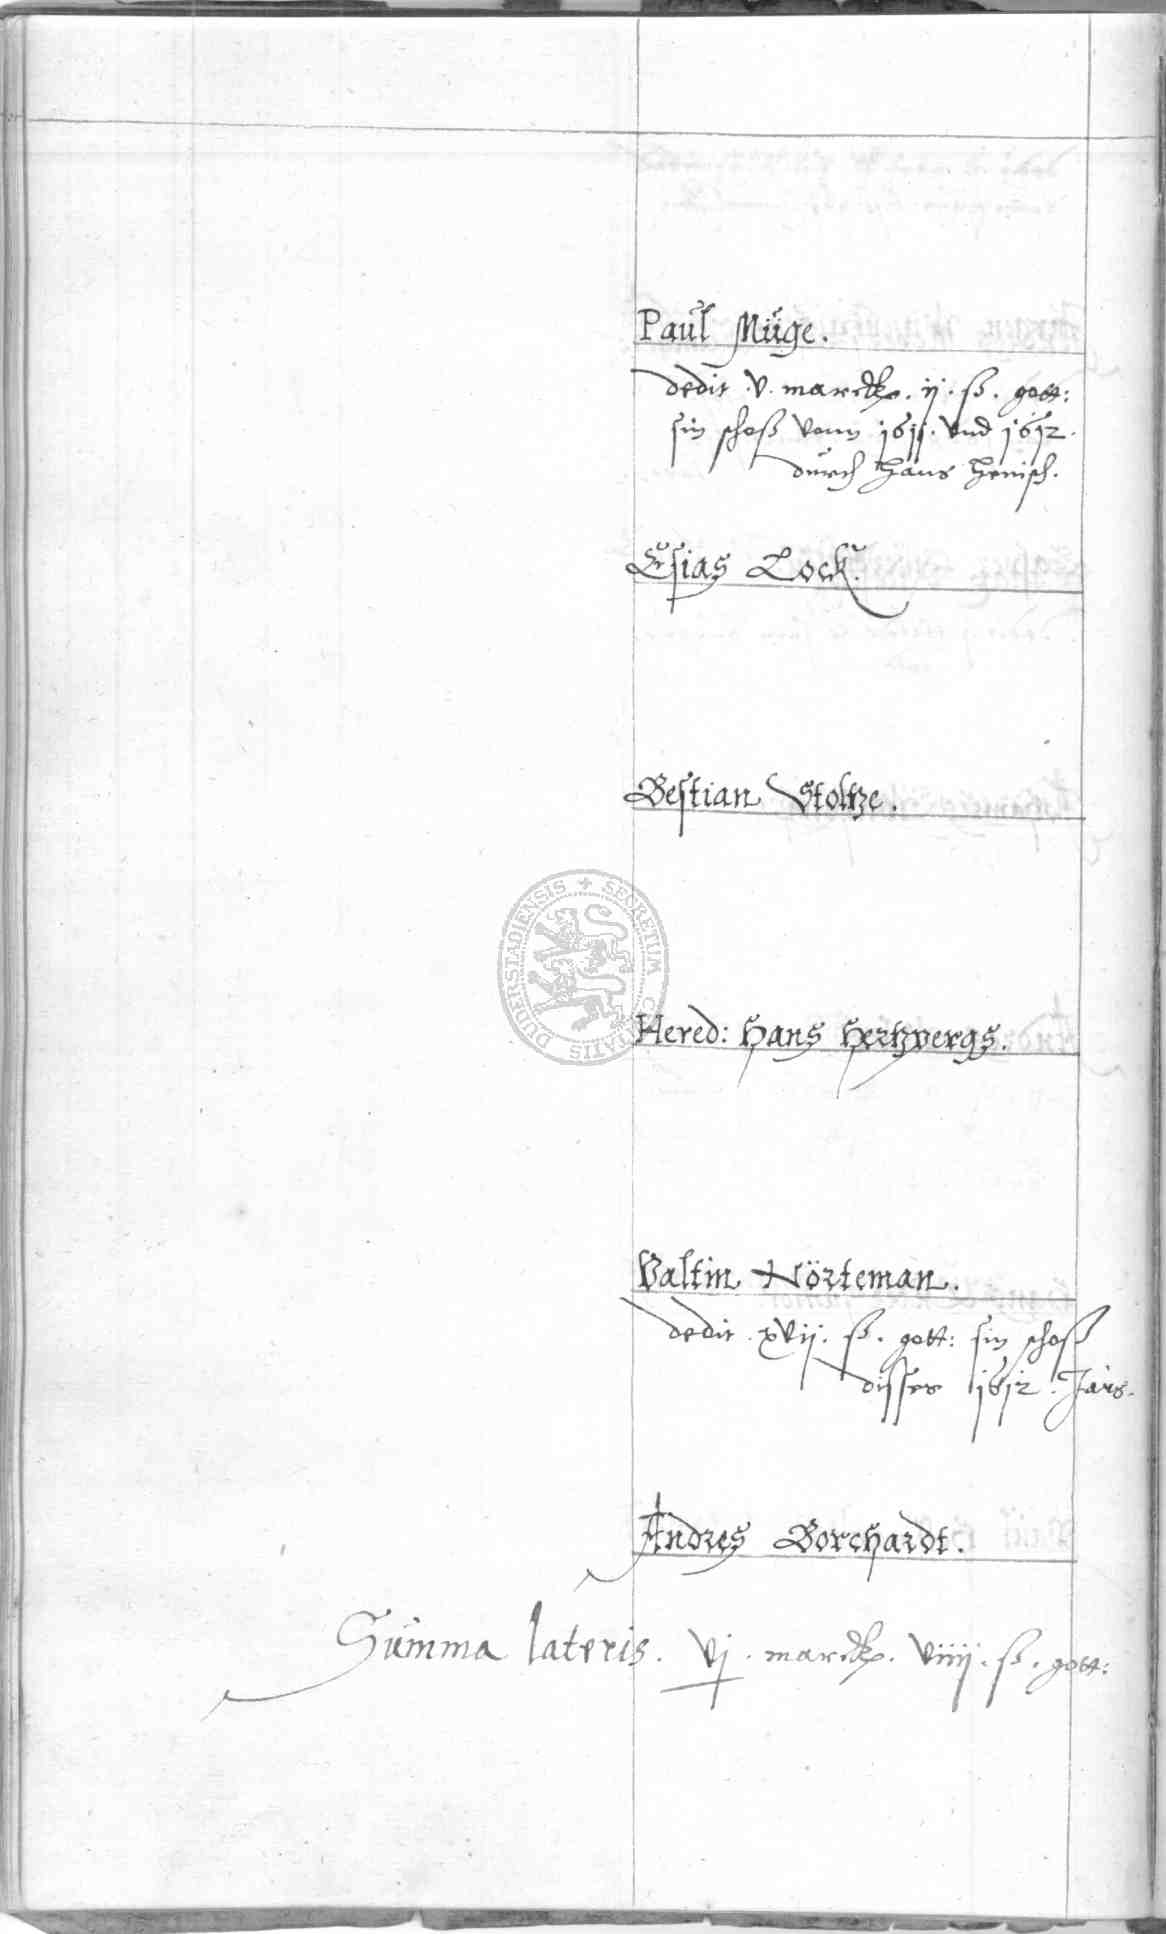 Paul Müge.
dedit .v. marck. ij. ß. gott:
sin schoß vonn 1611. vnd 1612.
durch Hans Henisch.
Esias Lock.
Bestian Stoltze.
SECRETUM CIVITATIS DUDERSTADIENSIS
Hered: Hans Hertzbergs.
Valtin Nörteman.
dedit xvij. ß. gott: sin schoß
disses 1612. Jars.
Andres Borchardt.
Summa lateris. vj. marck. viiij. ß. gott: